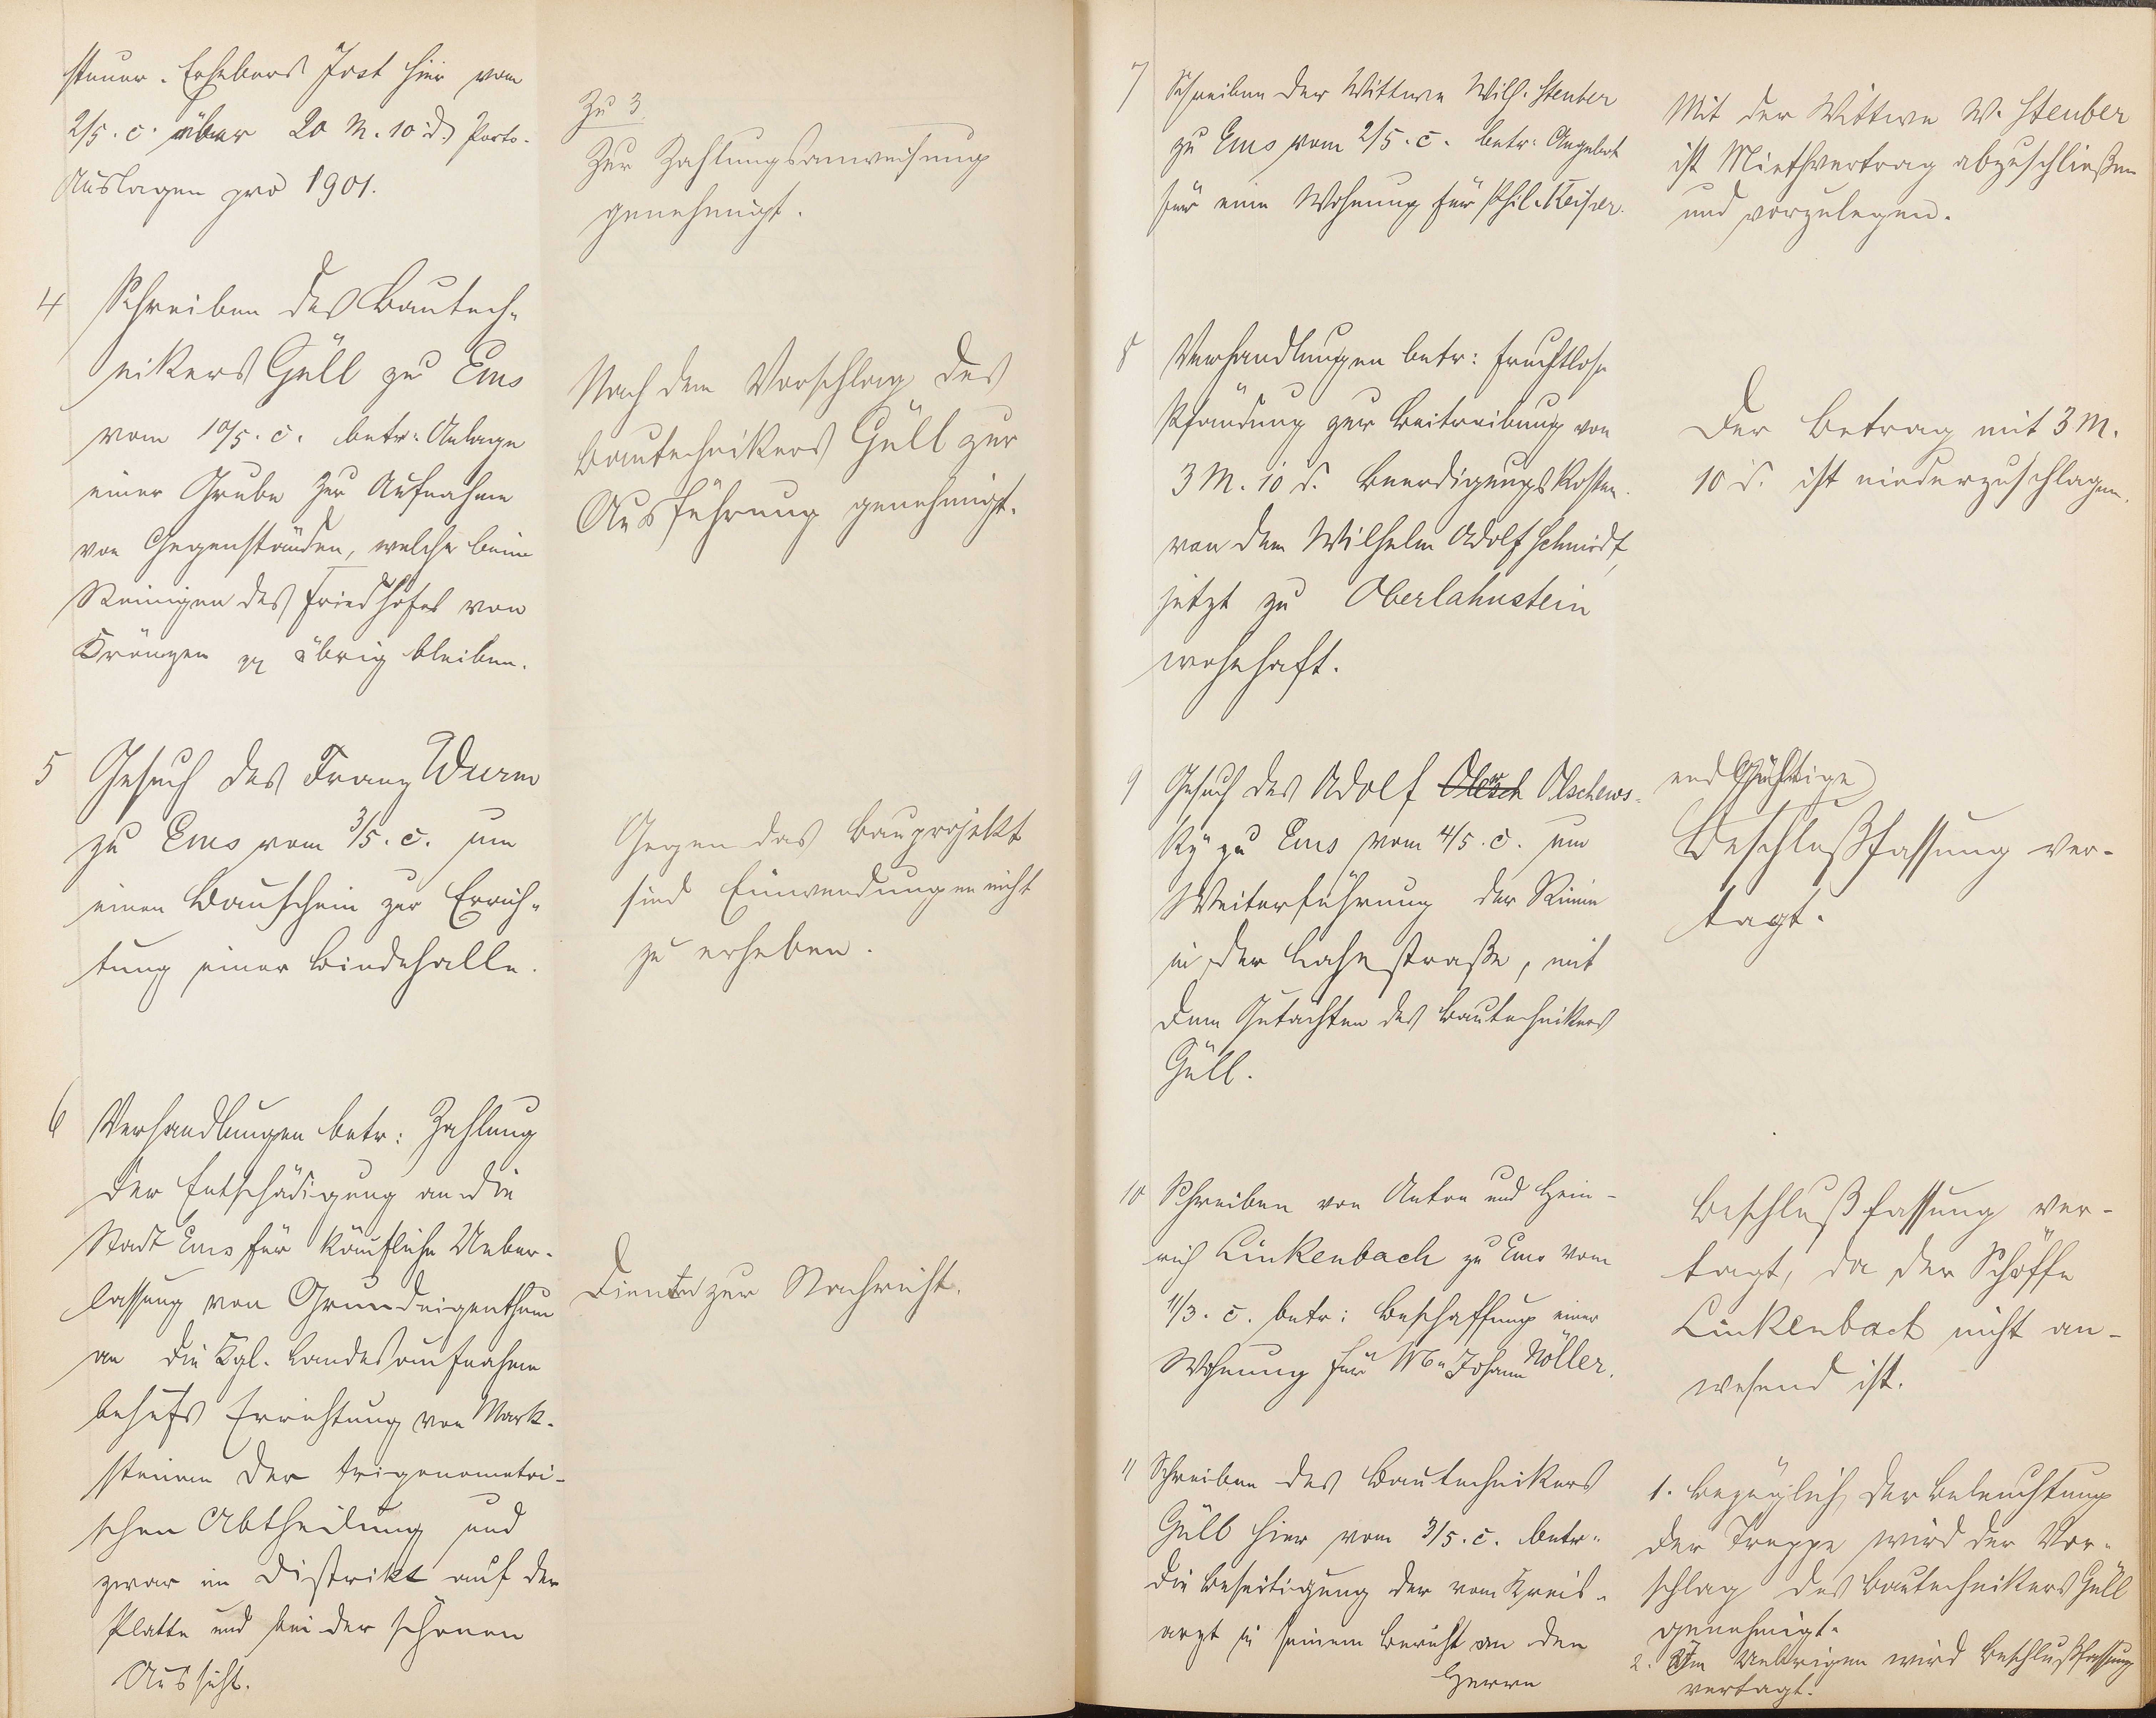 steuer-Erhebers Jost hier vom
2/5. c. über 20 M. 10 d. Porto-
Auslagen pro 1901.
Zu 3
Zur Zahlungsanweisung
genehmigt.
4 Schreiben des Bautech-
nikers Güll zu Ems
vom 10/5. c. betr: Anlage
einer Grube zur Aufnahme
von Gegenständen, welche beim
Reinigen des Friedhofes von
Kränzen pp übrig bleiben.
Nach dem Vorschlag des
Bautechnikers Güll zur
Ausführung genehmigt.
5 Gesuch des Franz Wurm
zu Ems vom 3/5. c. um
einen Bauschein zur Errich-
tung einer Bindehalle.
Gegen das Bauprojekt
sind Einwendungen nicht
zu erheben.
6 Verhandlungen betr: Zahlung
der Entschädigung an die
Stadt Ems für käufliche Ueber-
lassung von Grundeigenthum
an die Kgl. Landesaufnahme
behufs Errichtung von Mark-
steinen der trigonometri-
schen Abtheilung und
zwar im Distrikt auf der
Platte und bei der schönen
Aussicht.
Diente zur Nachricht.
7 Schreiben der Wittwe Wilh. Steuber
zu Ems vom 2/5. c. betr: Angebot
für eine Wohnung für Phil. Keiper.
Mit der Wittwe W. Steuber
ist Miethvertrag abzuschließen
und vorzulegen.
8 Verhandlungen betr: fruchtlose
Pfändung zur Beitreibung von
3 M. 10 d. Beerdigungskosten
von dem Wilhelm Adolf Schmidt,
jetzt zu Oberlahnstein
wohnhaft.
Der Betrag mit 3 M.
10 d. ist niederzuschlagen.
9 Gesuch des Adolf Olersch Olschews-
ky zu Ems vom 4/5. c. um
Weiterführung der Rinne
in der Lahnstraße, mit
dem Gutachten des Bautechnikers
Güll.
endgültige
Beschlußfassung ver-
tagt.
10 Schreiben von Anton und Hein-
rich Linkenbach zu Ems vom
11/3. c. betr: Beschaffung einer
Wohnung für Wwe Johann Nöller.
Beschlußfassung ver-
tagt, da der Schöffe
Linkenbach nicht an-
wesend ist.
11 Schreiben des Bautechnikers
Güll hier vom 3/5. c. betr:
die Beseitigung der vom Kreis-
arzt in seinem Bericht an den
Herrn
1. Bezüglich der Beleuchtung
der Treppe wird der Vor-
schlag des Bautechnikers Güll
genehmigt.
2. Im Uebrigen wird Beschlußfassung
vertagt.